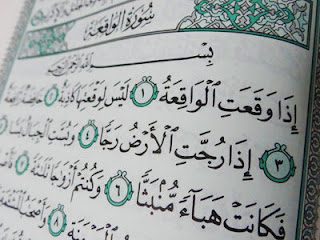 سُورَةُ الواقِعَة
بِسْمِ ٱللَّهِ ٱلرَّحْمَٰنِ ٱلرَّحِيمِ
إِذَا وَقَعَتِ ٱلْوَاقِعَةُ ١ لَيْسَ لِوَقْعَتِهَا كَاذِبَةٌ ٢ خَافِضَةٌ رَّافِعَةٌ
٣ إِذَا رُجَّتِ ٱلْأَرْضُ رَجًّا ٤ وَبُسَّتِ ٱلْجِبَالُ بَسًّا
فَكَانَتْ هَبَآءً مُّنۢبَثًّا ٦ وَكُنتُمْ أَزْوَٰجًا ثَلَٰثَةً ٧
٨ وَأَصْحَٰبُ